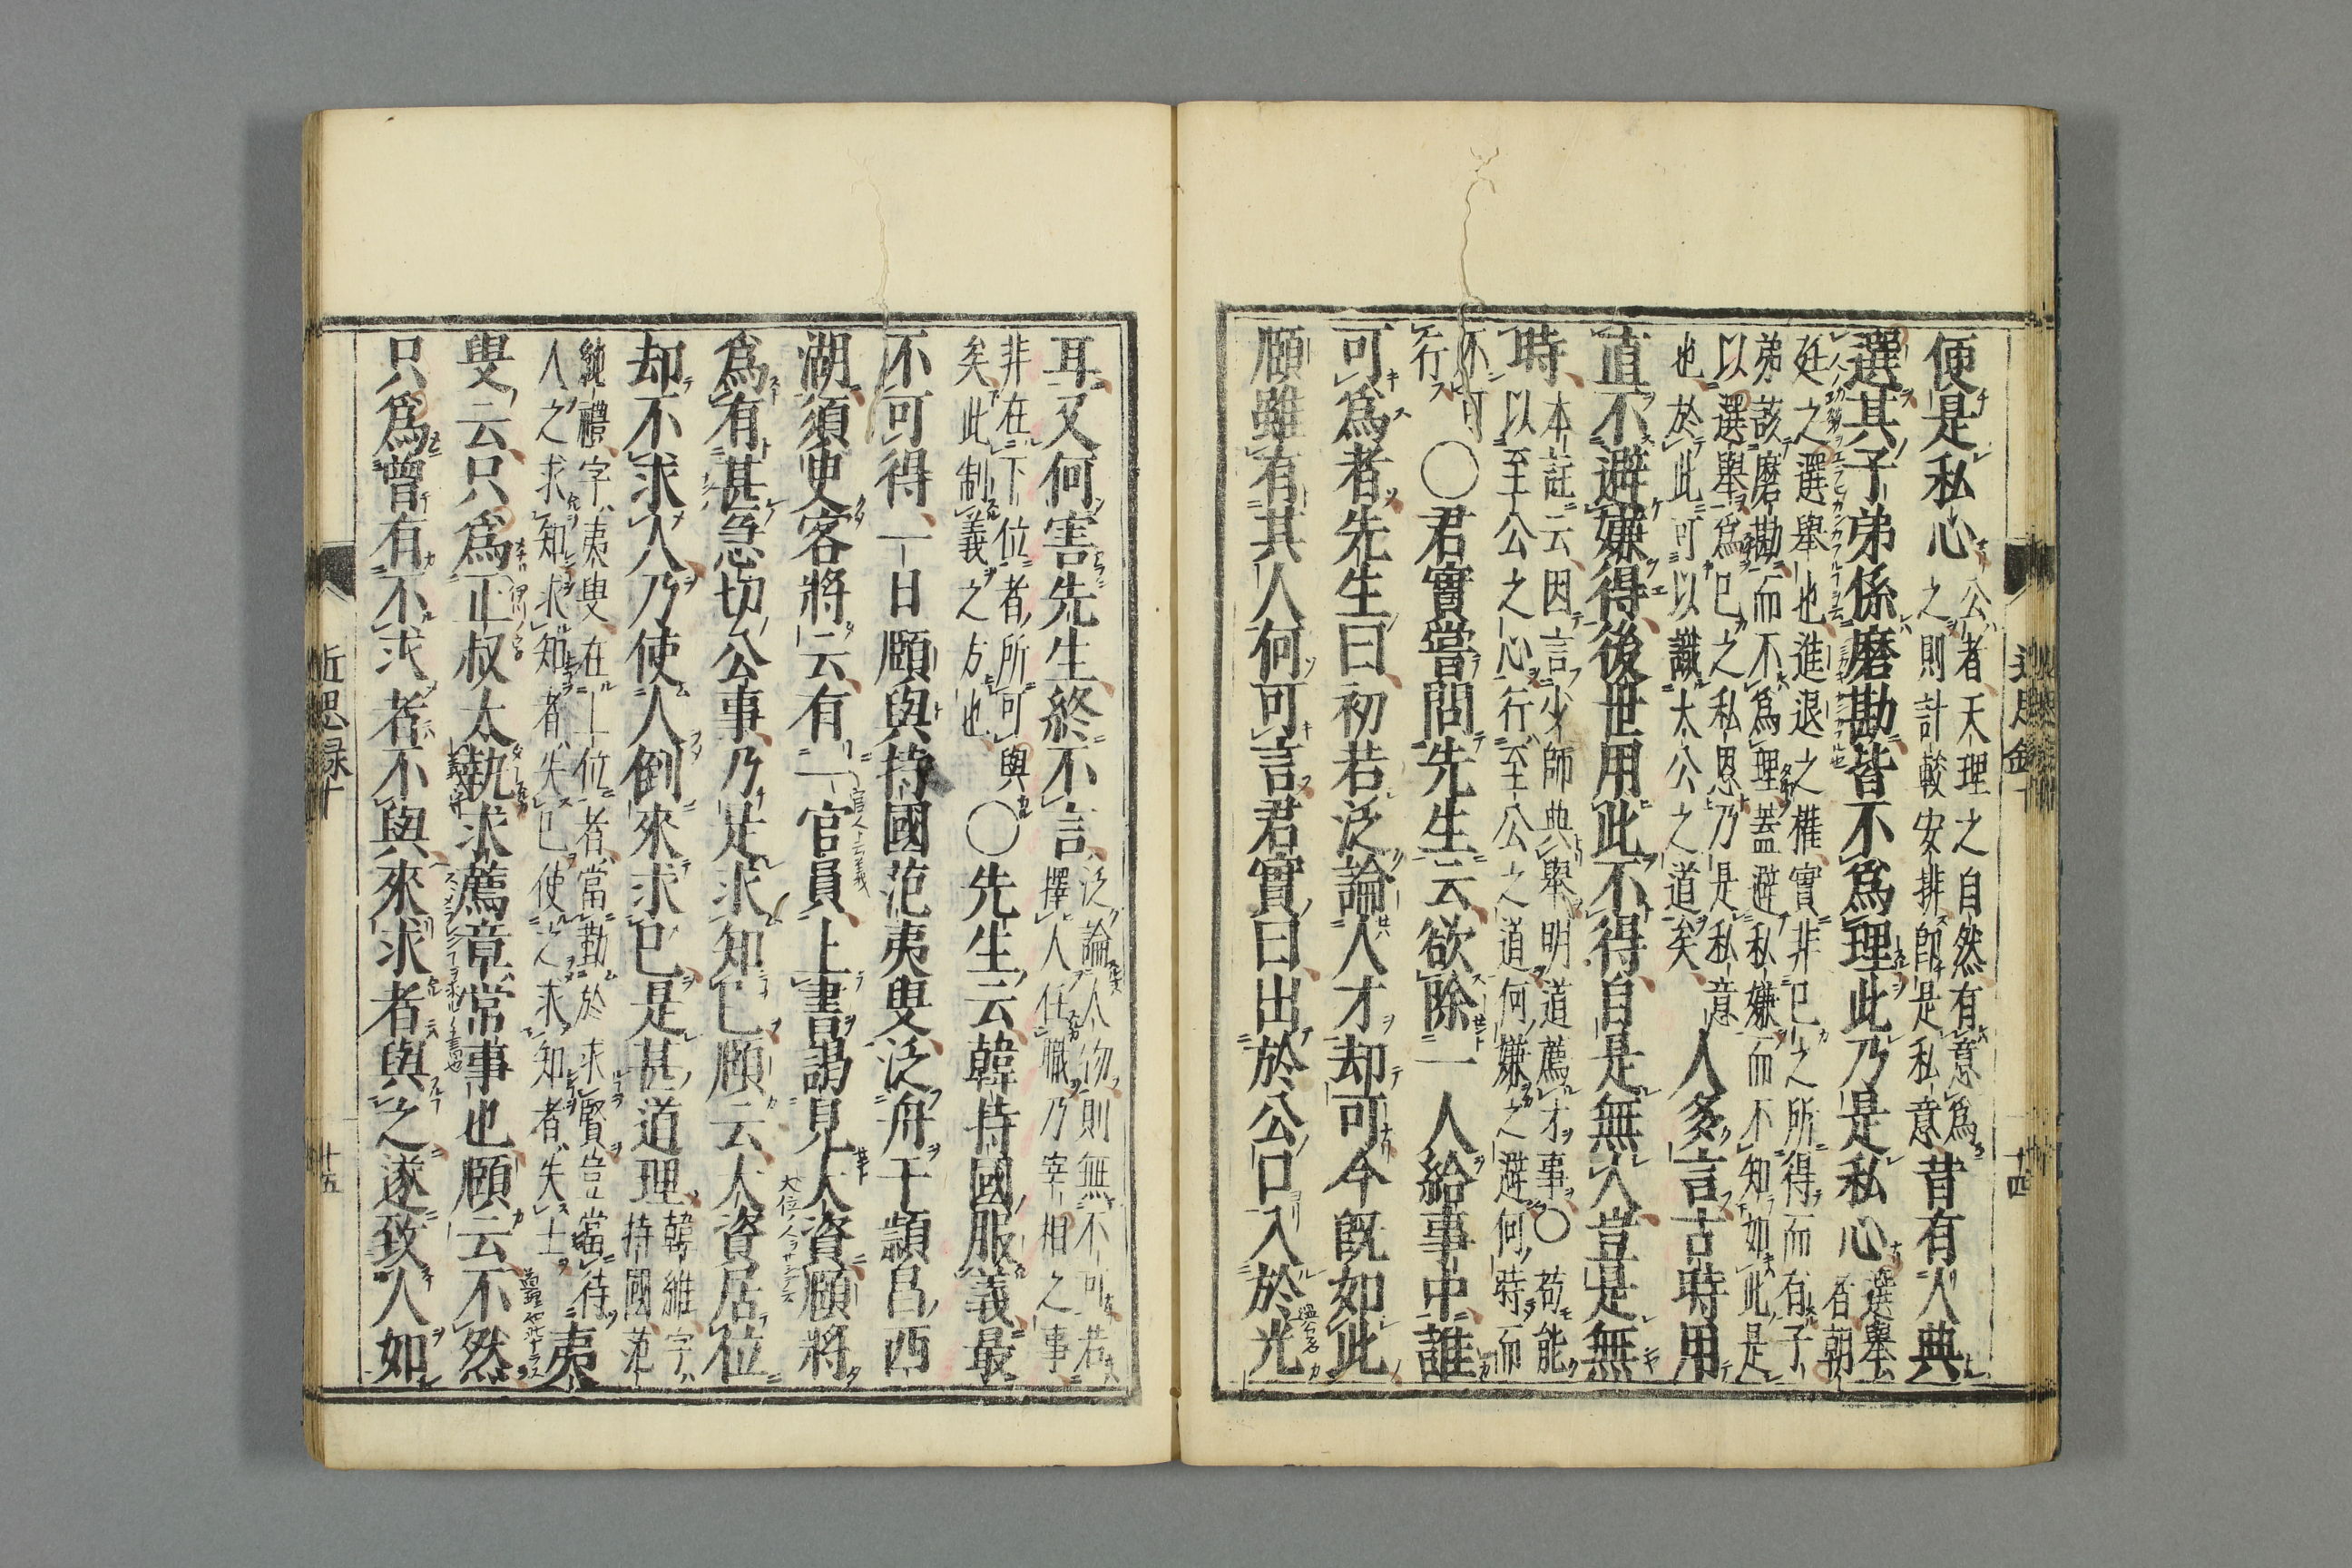 便是私心公者天理之自然有意爲
之則計較安排即是私意昔有人典
選其子弟係磨勘皆不爲理此乃是私心選舉
者朝
廷之選舉也進退之權實非已之所得而有子
弟該磨勘而不爲理蓋避私嫌而不知如此是
以選舉爲已之私恩乃是私意
也於此可以識太公之道矣人多言古時用
直不避嫌得後世用此不得自是無人豈是無
時本註云因言少師典舉明道薦才事○苟能
以至公之心行至公之道何嫌之避何時而
不可
行○君實嘗問先生云欲除一人給事中誰
可爲者先生曰初若泛論人才却可今既如此
頤雖有其人何可言君實曰出於公口入於光
近思録十
十四
耳又何害先生終不言泛論人物則無不可若
擇人任職乃宰相之事
非在下位者所可與
矣此制義之方也○先生云韓持國服義最
不可得一日頤與持國范夷叟泛舟于潁昌西
湖須吏客將云有一官員上書謁見大資頤將
爲有甚急切公事乃是求知已頤云大資居位
却不求人乃使人倒來求已是甚道理韓維字
持國范
純禮字夷叟在上位者當勤於求賢豈當待
人之求知求知者失已使之求知者失士夷
叟云只爲正叔太執求薦章常事也頤云不然
只爲曾有不求者不與來求者與之遂致人如
近思録十
十五